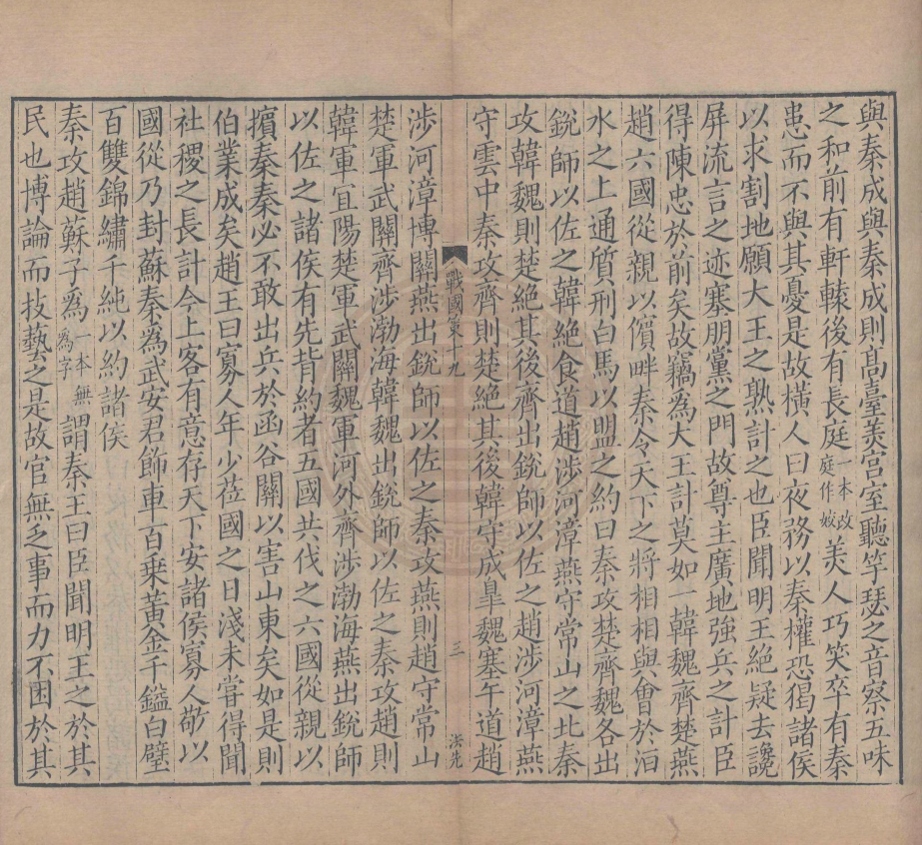 與秦成與秦成則髙臺美宫室聽竽瑟之音察五味
之和前有軒轅後有長庭一本改庭作姣美人巧笑卒有秦
患而不與其憂是故横人日夜務以秦權恐猲諸侯
以求割地願大王之熟計之也臣聞明王絶疑去讒
屏流言之迹塞朋黨之門故尊主廣地強兵之計臣
得陳忠於前矣故竊爲大王計莫如一韓魏齊楚燕
趙六國從親以儐畔秦令天下之將相相與會於洹
水之上通質刑白馬以盟之約曰秦攻楚齊魏各出
銳師以佐之韓絶食道趙涉河漳燕守常山之北秦
攻韓魏則楚絶其後齊出銳師以佐之趙涉河漳燕
守雲中秦攻齊則楚絶其後韓守成臯魏塞午道趙
戰國策十九
三
洪先
涉河漳博關燕出銳師以佐之秦攻燕則趙守常山
楚軍武關齊涉渤海韓魏出銳師以佐之秦攻趙則
韓軍宜陽楚軍武關魏軍河外齊涉渤海燕出銳師
以佐之諸侯有先背約者五國共伐之六國從親以
擯秦秦必不敢出兵於函谷關以害山東矣如是則
伯業成矣趙王曰寡人年少莅國之日淺未嘗得聞
社稷之長計今上客有意存天下安諸侯寡人敬以
國從乃封蘇秦爲武安君飾車百乗黄金千鎰白璧
百雙錦繡千純以約諸侯
秦攻趙蘇子爲一本無爲字謂秦王曰臣聞明王之於其
民也博論而技藝之是故官無乏事而力不困於其